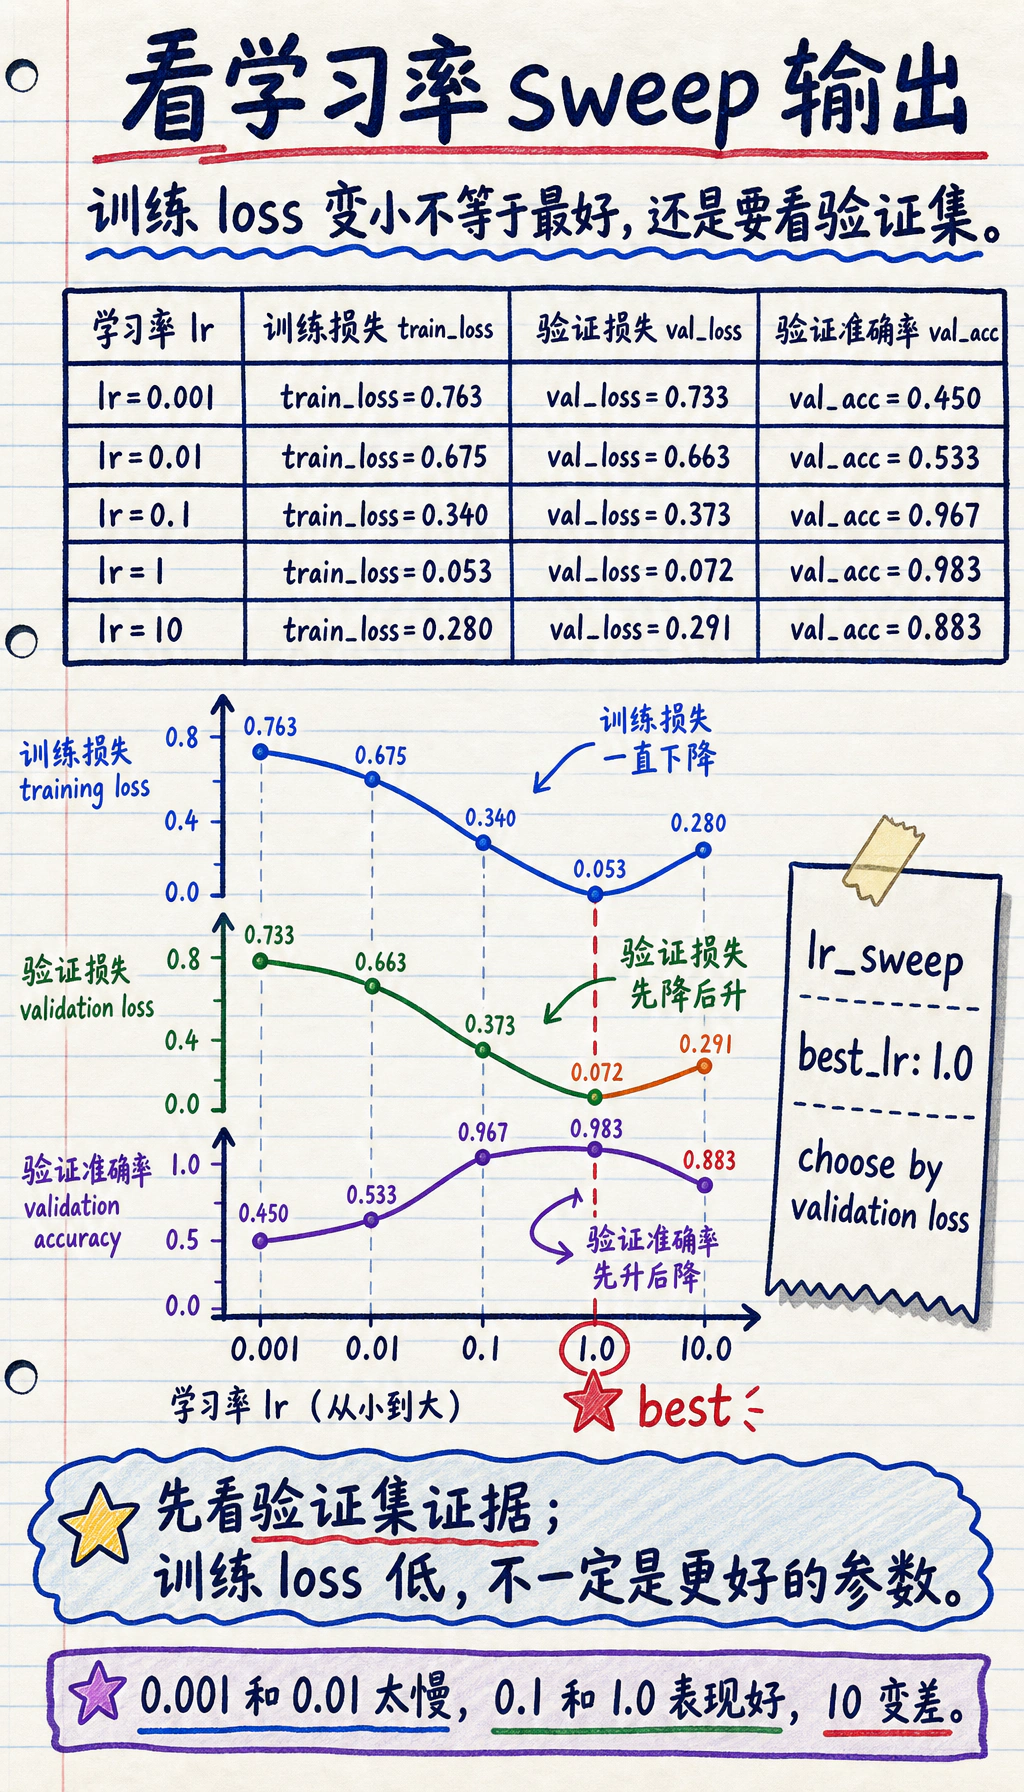 看学习率 sweep 输出
训练 loss 变小不等于最好, 还是要看验证集。
学习率 lr 训练损失 train_loss 验证损失 val_loss 验证准确率 val_acc
lr=0.001 train_loss=0.763 val_loss=0.733 val_acc=0.450
lr=0.01 train_loss=0.675 val_loss=0.663 val_acc=0.533
lr=0.1 train_loss=0.340 val_loss=0.373 val_acc=0.967
lr=1 train_loss=0.053 val_loss=0.072 val_acc=0.983
lr=10 train_loss=0.280 val_loss=0.291 val_acc=0.883
训练损失
training loss
0.8
0.4
0.0
0.763
0.675
0.340
0.053
0.280
训练损失
一直下降
验证损失
validation loss
0.8
0.4
0.0
0.733
0.663
0.373
0.072
0.291
验证损失
先降后升
验证准确率
validation
accuracy
1.0
0.5
0.0
0.450
0.533
0.967
0.983
0.883
验证准确率
先升后降
0.001 0.01 0.1 1.0 10.0
学习率 lr (从小到大)
best
lr_sweep
best_lr: 1.0
choose by
validation loss
先看验证集证据;
训练 loss 低, 不一定是更好的参数。
0.001 和 0.01 太慢, 0.1 和 1.0 表现好, 10 变差。